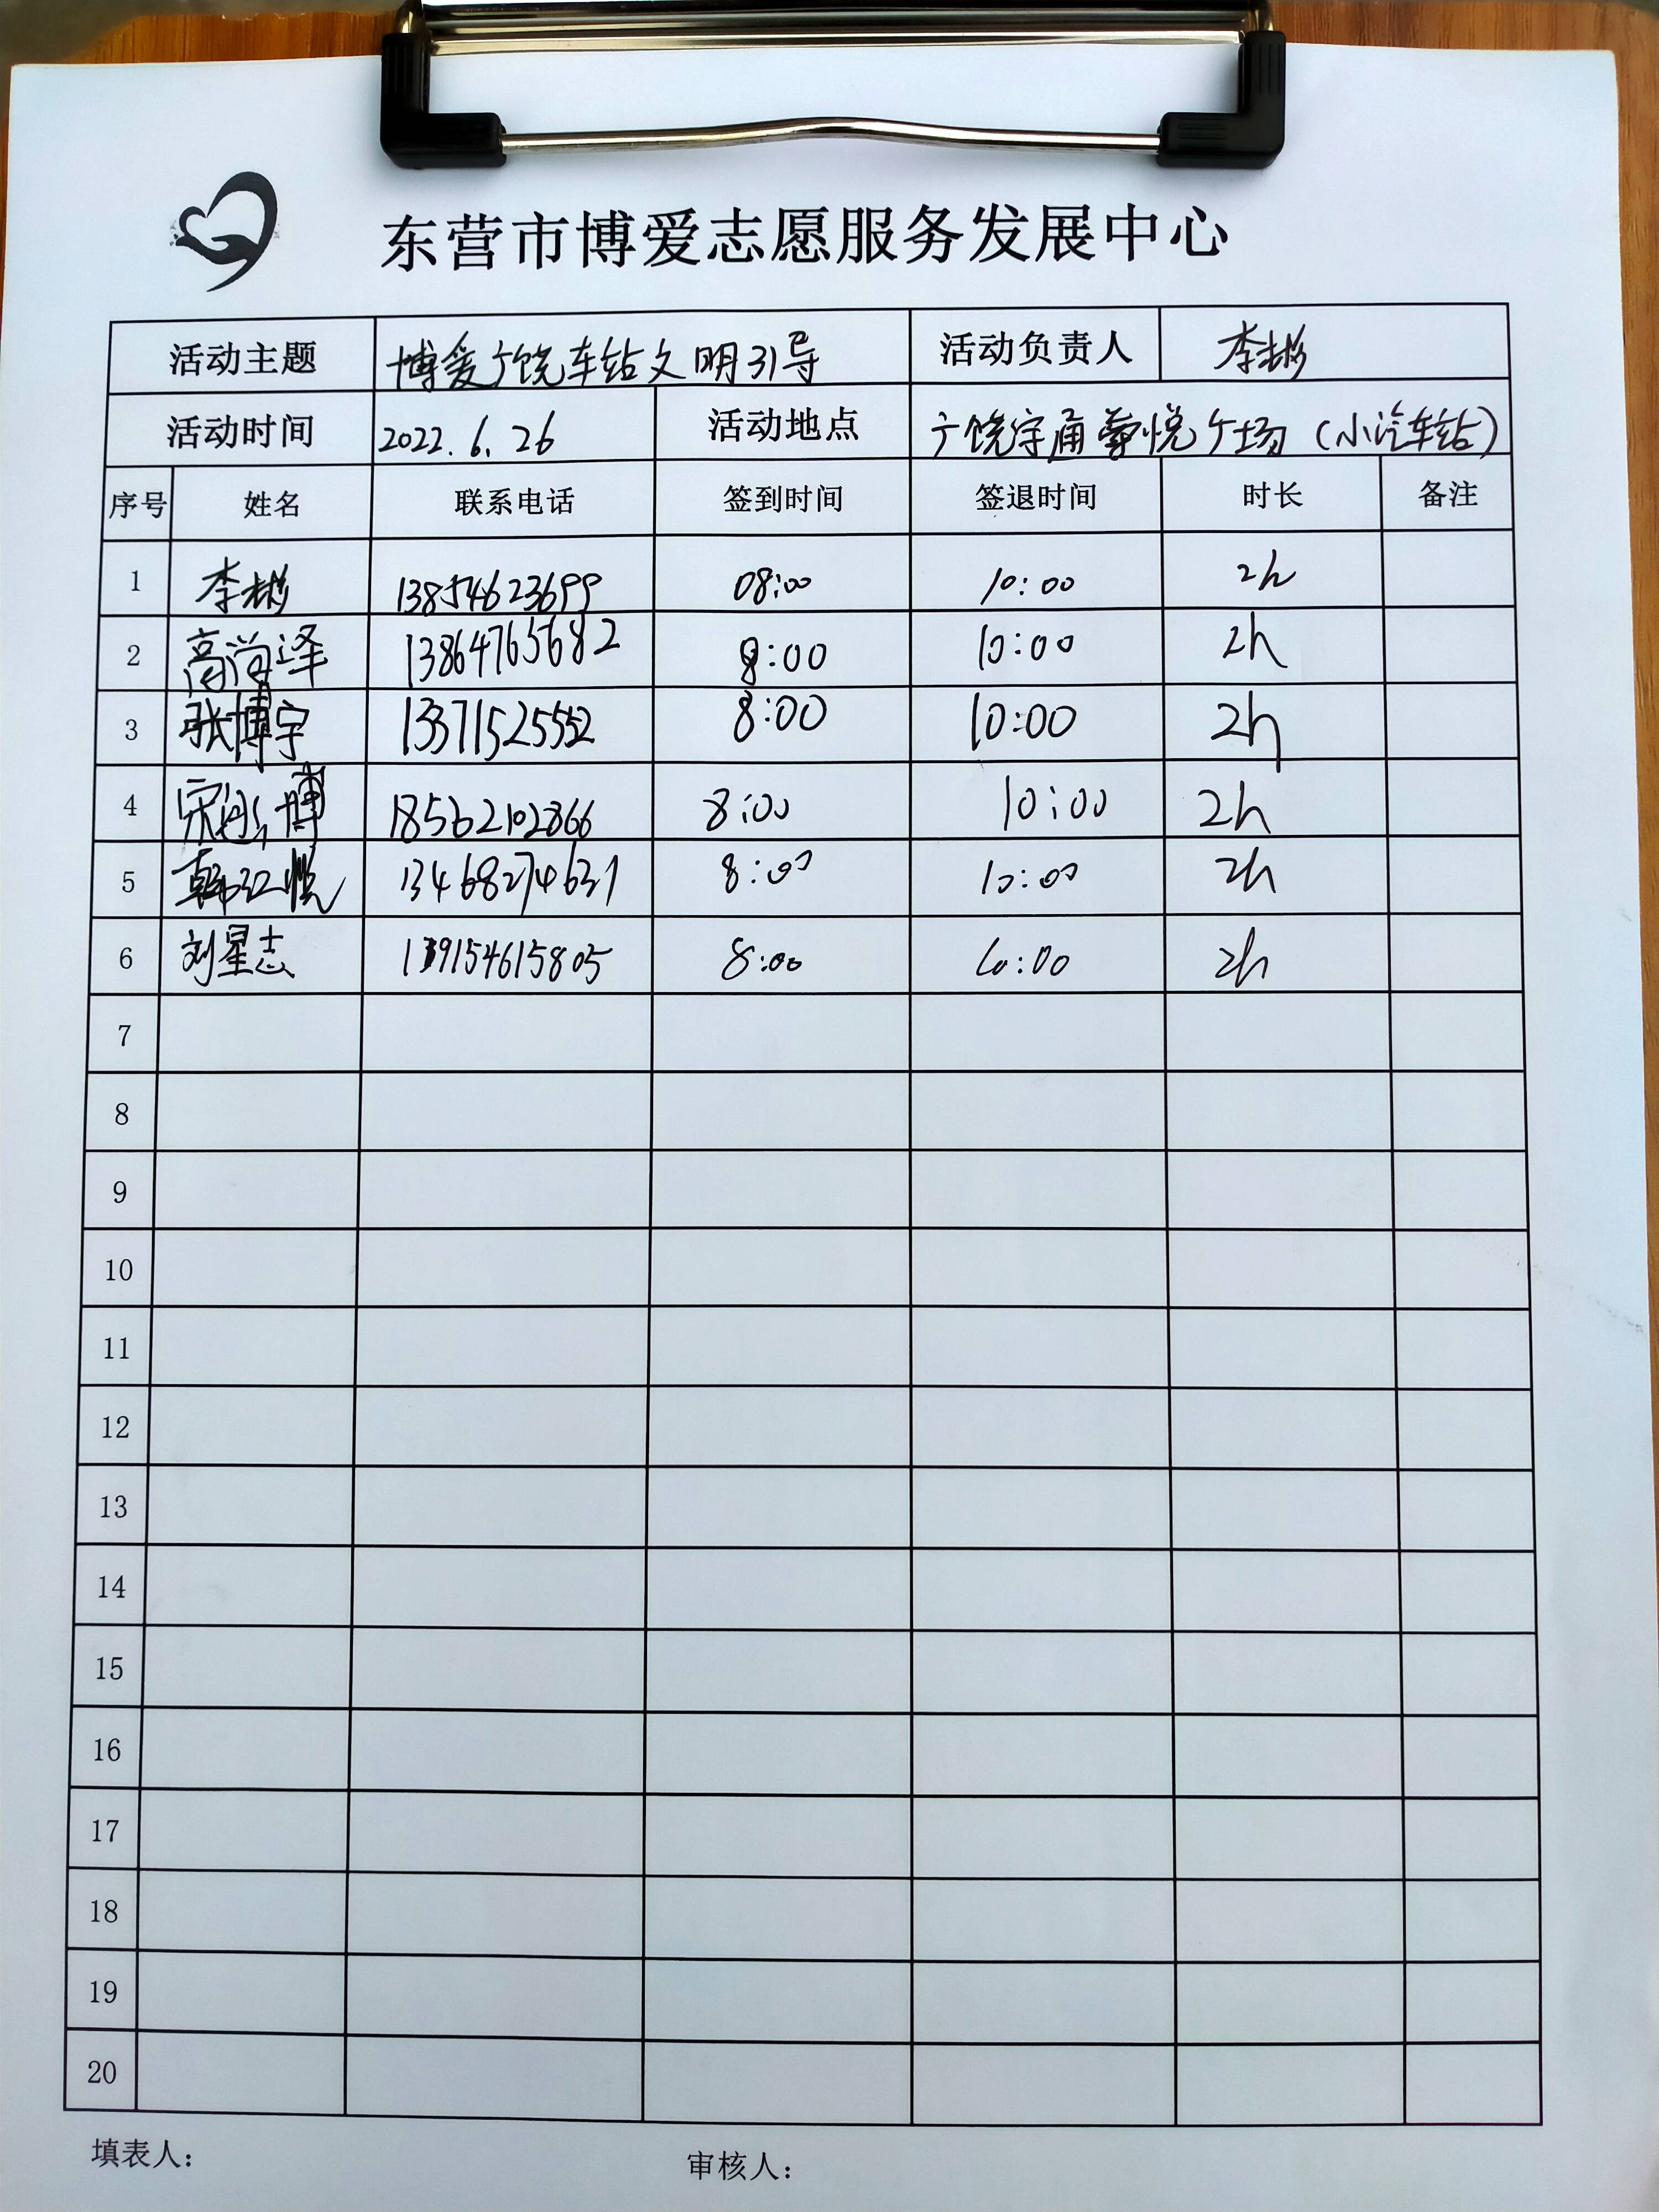 东营市博爱志愿服务发展中心
活动主题 博爱广饶车站文明引导 活动负责人 李彬
活动时间 2022.6.26 活动地点 广饶宇通 悦广场(小汽车站)
序号 姓名 联系电话 签到时间 签退时间 时长 备注
1 李彬 13854623699 08:00 10:00 2h
2 高尚泽 13864765682 8:00 10:00 2h
3 张博宇 13371525552 8:00 10:00 2h
4 宋 博 18562102866 8:00 10:00 2h
5 韩 悦 13468274631 8:00 10:00 2h
6 刘星志 8:00 10:00 2h
7
8
9
10
11
12
13
14
15
16
17
18
19
20
填表人: 审核人: